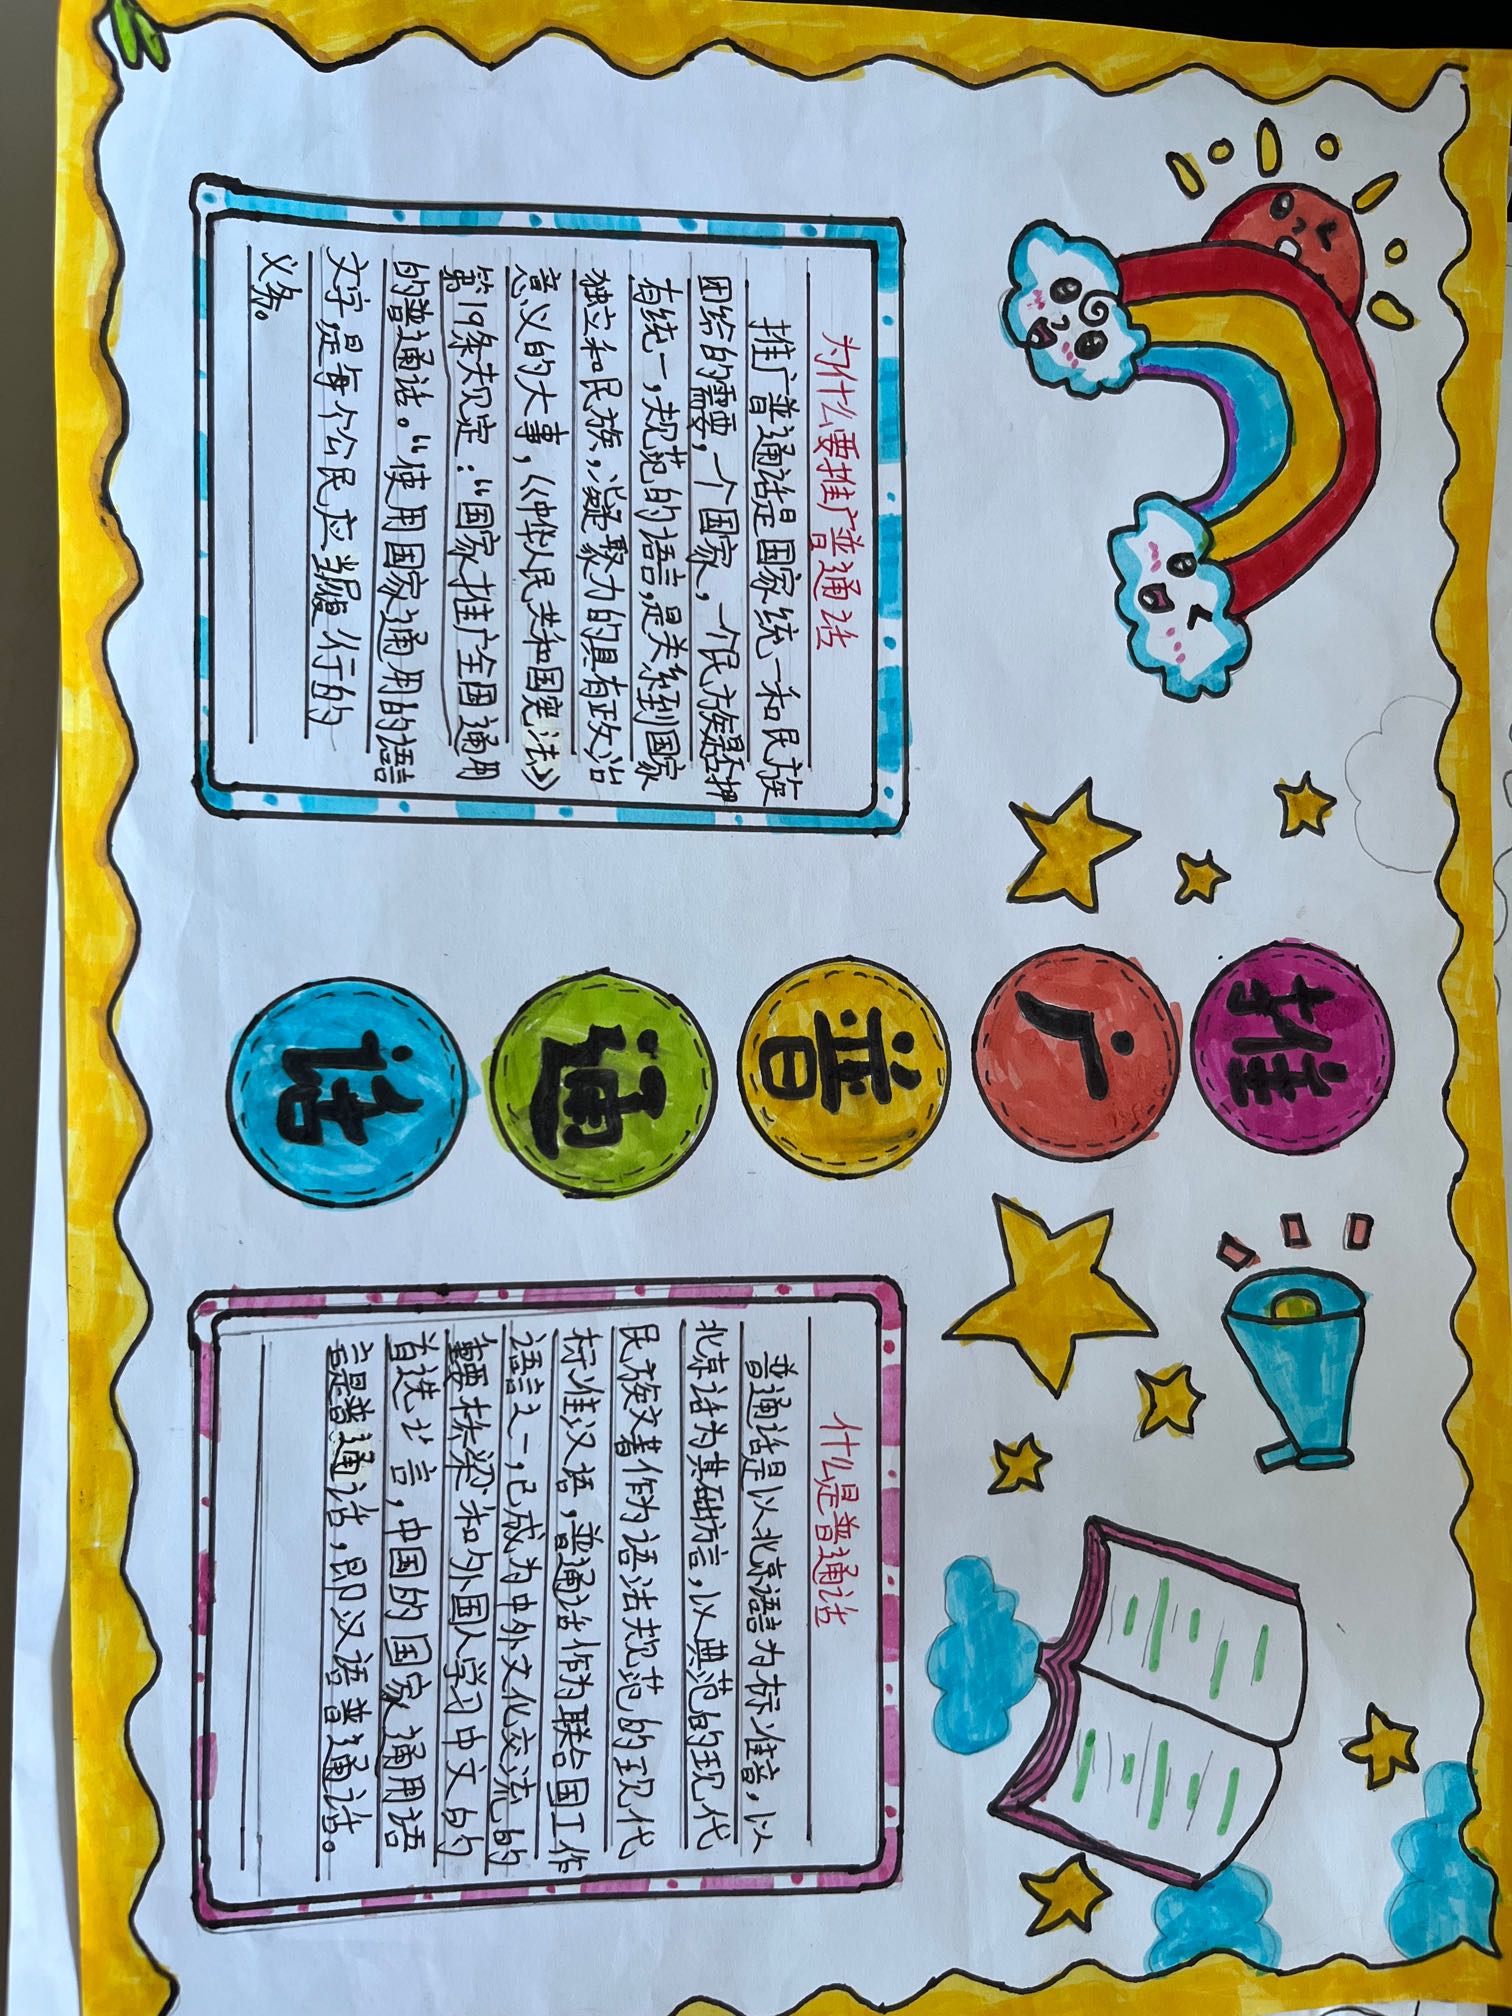 推广普通话
为什么要推广普通话
推广普通话是国家统一和民族
团结的需要，一个国家，一个民族是否拥
有统一，规范的语言，是关系到国家
独立和民族，凝聚力的具有政治
意义的大事，《中华人民共和国宪法》
第19条规定：“国家推广全国通用
的普通话。“使用国家通用的语言
文字是每个公民应当履行的
义务。
什么是普通话
普通话是以北京语言为标准音，以
北京话为基础方言，以典范的现代
民族文著作为语法规范的现代
标准汉语，普通话作为联合国工作
语言之一，已成为中外文化交流的
重要桥梁和外国人学习中文的
首选语言，中国的国家通用语
言是普通话，即汉语普通话。